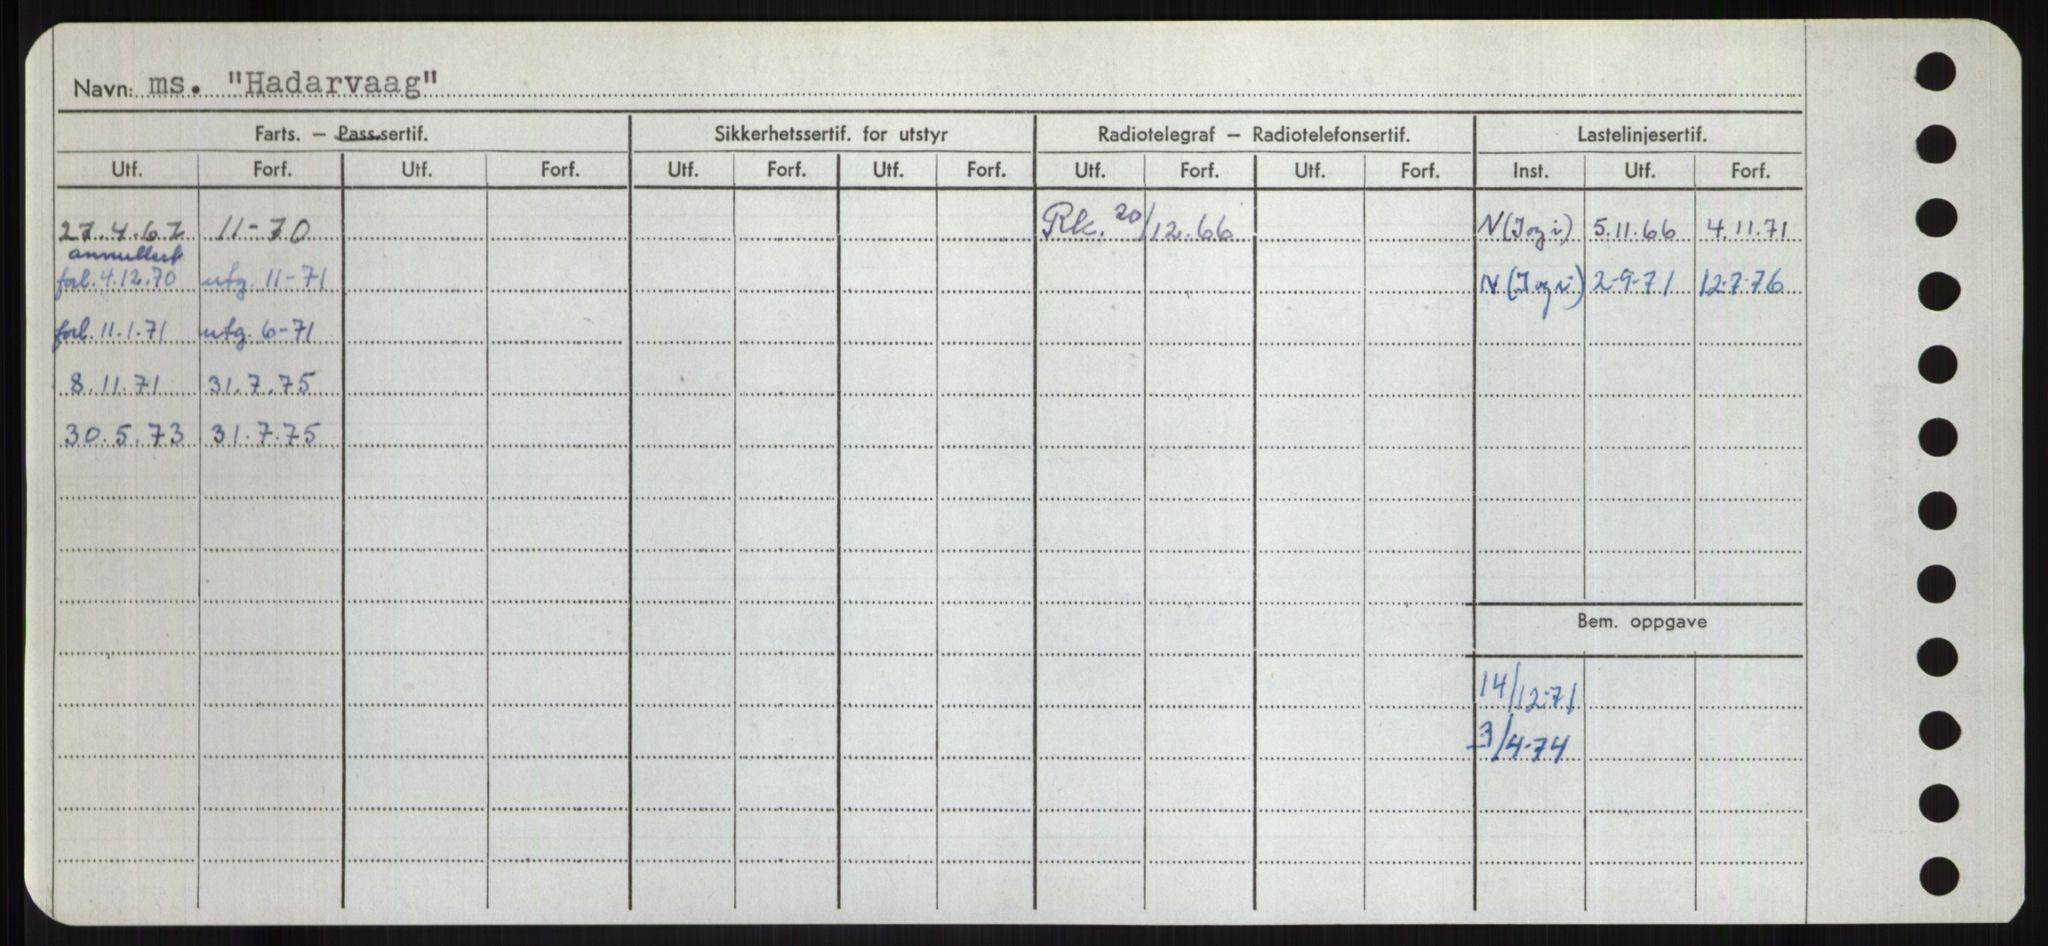 Navn: ms. "Hadarvaag"
Farts. — Passsertif. Sikkerhetssertif. for utstyr Radiotelegraf — Radiotelefonsertif. Lastelinjesertif.
Utf. Forf. Utf. Forf. Utf. Forf. Utf. Forf. Utf. Forf. Utf. Forf. Inst. Utf. Forf.
27.4.67 11-70 Rk. 20/12.66 N(I og i) 5.11.66 4.11.71
annullert
forl. 4.12.70 utg. 11-71 N(I og i) 2-9-71 12-7-76
forl. 11.1.71 utg. 6-71
8.11.71 31.7.75
30.5.73 31.7.75
Bem. oppgave
14/12-71
3/4-74